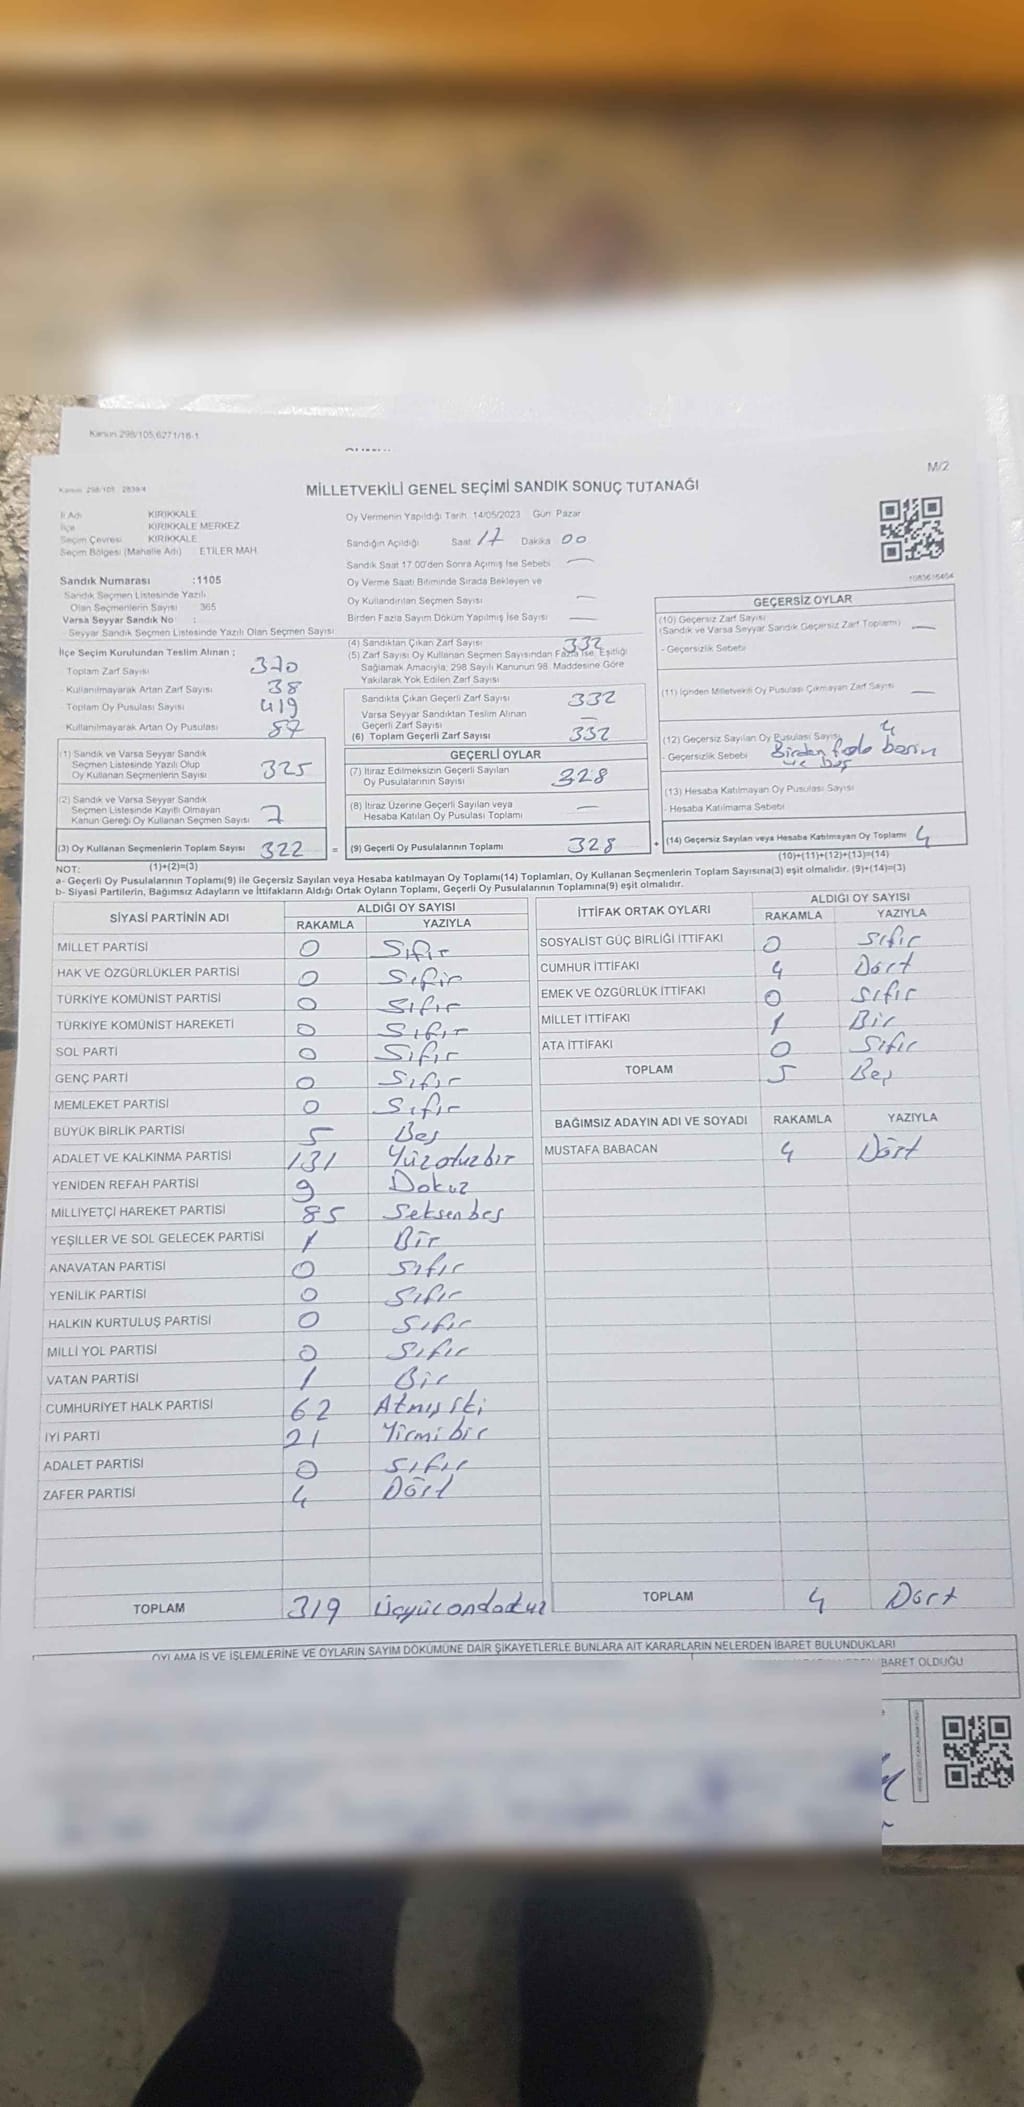 Kanun 298/105,6271/16-1
M/2
Kanun 298/105 2839/4
MİLLETVEKİLİ GENEL SEÇİMİ SANDIK SONUÇ TUTANAĞI
İl Adı KIRIKKALE
İlçe KIRIKKALE MERKEZ
Seçim Çevresi KIRIKKALE
Seçim Bölgesi (Mahalle Adı) ETİLER MAH.
Sandık Numarası :1105
Sandık Seçmen Listesinde Yazılı
Olan Seçmenlerin Sayısı 365
Varsa Seyyar Sandık No :
Seyyar Sandık Seçmen Listesinde Yazılı Olan Seçmen Sayısı:
İlçe Seçim Kurulundan Teslim Alınan ;
Toplam Zarf Sayısı 370
Kullanılmayarak Artan Zarf Sayısı 38
Toplam Oy Pusulası Sayısı 419
Kullanılmayarak Artan Oy Pusulası 87
(1) Sandık ve Varsa Seyyar Sandık
Seçmen Listesinde Yazılı Olup
Oy Kullanan Seçmenlerin Sayısı 325
(2) Sandık ve Varsa Seyyar Sandık
Seçmen Listesinde Kayıtlı Olmayan
Kanun Gereği Oy Kullanan Seçmen Sayısı 7
(3) Oy Kullanan Seçmenlerin Toplam Sayısı 322 =
(1)+(2)=(3)
Oy Vermenin Yapıldığı Tarih 14/05/2023 Gün: Pazar
Sandığın Açıldığı Saat 17 Dakika 00
Sandık Saat 17.00'den Sonra Açımış İse Sebebi —
Oy Verme Saati Bitiminde Sırada Bekleyen ve
Oy Kullandırılan Seçmen Sayısı —
Birden Fazla Sayım Döküm Yapılmış İse Sayısı —
(4) Sandıktan Çıkan Zarf Sayısı 332
(5) Zarf Sayısı Oy Kullanan Seçmen Sayısından Fazla İse, Eşitliği
Sağlamak Amacıyla, 298 Sayılı Kanunun 98. Maddesine Göre
Yakılarak Yok Edilen Zarf Sayısı
Sandıkta Çıkan Geçerli Zarf Sayısı 332
Varsa Seyyar Sandıktan Teslim Alınan
Geçerli Zarf Sayısı —
(6) Toplam Geçerli Zarf Sayısı 332
GEÇERLİ OYLAR
(7) İtiraz Edilmeksizin Geçerli Sayılan
Oy Pusulalarının Sayısı 328
(8) İtiraz Üzerine Geçerli Sayılan veya
Hesaba Katılan Oy Pusulası Toplamı —
(9) Geçerli Oy Pusulalarının Toplamı 328 +
1083616404
GEÇERSİZ OYLAR
(10) Geçersiz Zarf Sayısı
(Sandık ve Varsa Seyyar Sandık Geçersiz Zarf Toplamı) —
- Geçersizlik Sebebi
(11) İçinden Milletvekili Oy Pusulası Çıkmayan Zarf Sayısı —
(12) Geçersiz Sayılan Oy Pusulası Sayısı 4
- Geçersizlik Sebebi Birden fazla
ve boş
(13) Hesaba Katılmayan Oy Pusulası Sayısı
- Hesaba Katılmama Sebebi
(14) Geçersiz Sayılan veya Hesaba Katılmayan Oy Toplamı 4
(10)+(11)+(12)+(13)=(14)
NOT:
a- Geçerli Oy Pusulalarının Toplamı(9) ile Geçersiz Sayılan veya Hesaba katılmayan Oy Toplamı(14) Toplamları, Oy Kullanan Seçmenlerin Toplam Sayısına(3) eşit olmalıdır. (9)+(14)=(3)
b- Siyasi Partilerin, Bağımsız Adayların ve İttifakların Aldığı Ortak Oyların Toplamı, Geçerli Oy Pusulalarının Toplamına(9) eşit olmalıdır.
SİYASİ PARTİNİN ADI ALDIĞI OY SAYISI
RAKAMLA YAZIYLA
MİLLET PARTİSİ 0 Sıfır
HAK VE ÖZGÜRLÜKLER PARTİSİ 0 Sıfır
TÜRKİYE KOMÜNİST PARTİSİ 0 Sıfır
TÜRKİYE KOMÜNİST HAREKETİ 0 Sıfır
SOL PARTİ 0 Sıfır
GENÇ PARTİ 0 Sıfır
MEMLEKET PARTİSİ 0 Sıfır
BÜYÜK BİRLİK PARTİSİ 5 Beş
ADALET VE KALKINMA PARTİSİ 131 Yüzotuzbir
YENİDEN REFAH PARTİSİ 9 Dokuz
MİLLİYETÇİ HAREKET PARTİSİ 85 Seksenbeş
YEŞİLLER VE SOL GELECEK PARTİSİ 1 Bir
ANAVATAN PARTİSİ 0 Sıfır
YENİLİK PARTİSİ 0 Sıfır
HALKIN KURTULUŞ PARTİSİ 0 Sıfır
MİLLİ YOL PARTİSİ 0 Sıfır
VATAN PARTİSİ 1 Bir
CUMHURİYET HALK PARTİSİ 62 Atmışiki
İYİ PARTİ 21 Yirmibir
ADALET PARTİSİ 0 Sıfır
ZAFER PARTİSİ 4 Dört
TOPLAM 319 Üçyüzondokuz
İTTİFAK ORTAK OYLARI ALDIĞI OY SAYISI
RAKAMLA YAZIYLA
SOSYALİST GÜÇ BİRLİĞİ İTTİFAKI 0 Sıfır
CUMHUR İTTİFAKI 4 Dört
EMEK VE ÖZGÜRLÜK İTTİFAKI 0 Sıfır
MİLLET İTTİFAKI 1 Bir
ATA İTTİFAKI 0 Sıfır
TOPLAM 5 Beş
BAĞIMSIZ ADAYIN ADI VE SOYADI RAKAMLA YAZIYLA
MUSTAFA BABACAN 4 Dört
TOPLAM 4 Dört
OYLAMA İŞ VE İŞLEMLERİNE VE OYLARIN SAYIM DÖKÜMÜNE DAİR ŞİKAYETLERLE BUNLARA AİT KARARLARIN NELERDEN İBARET BULUNDUKLARI
İBARET OLDUĞU